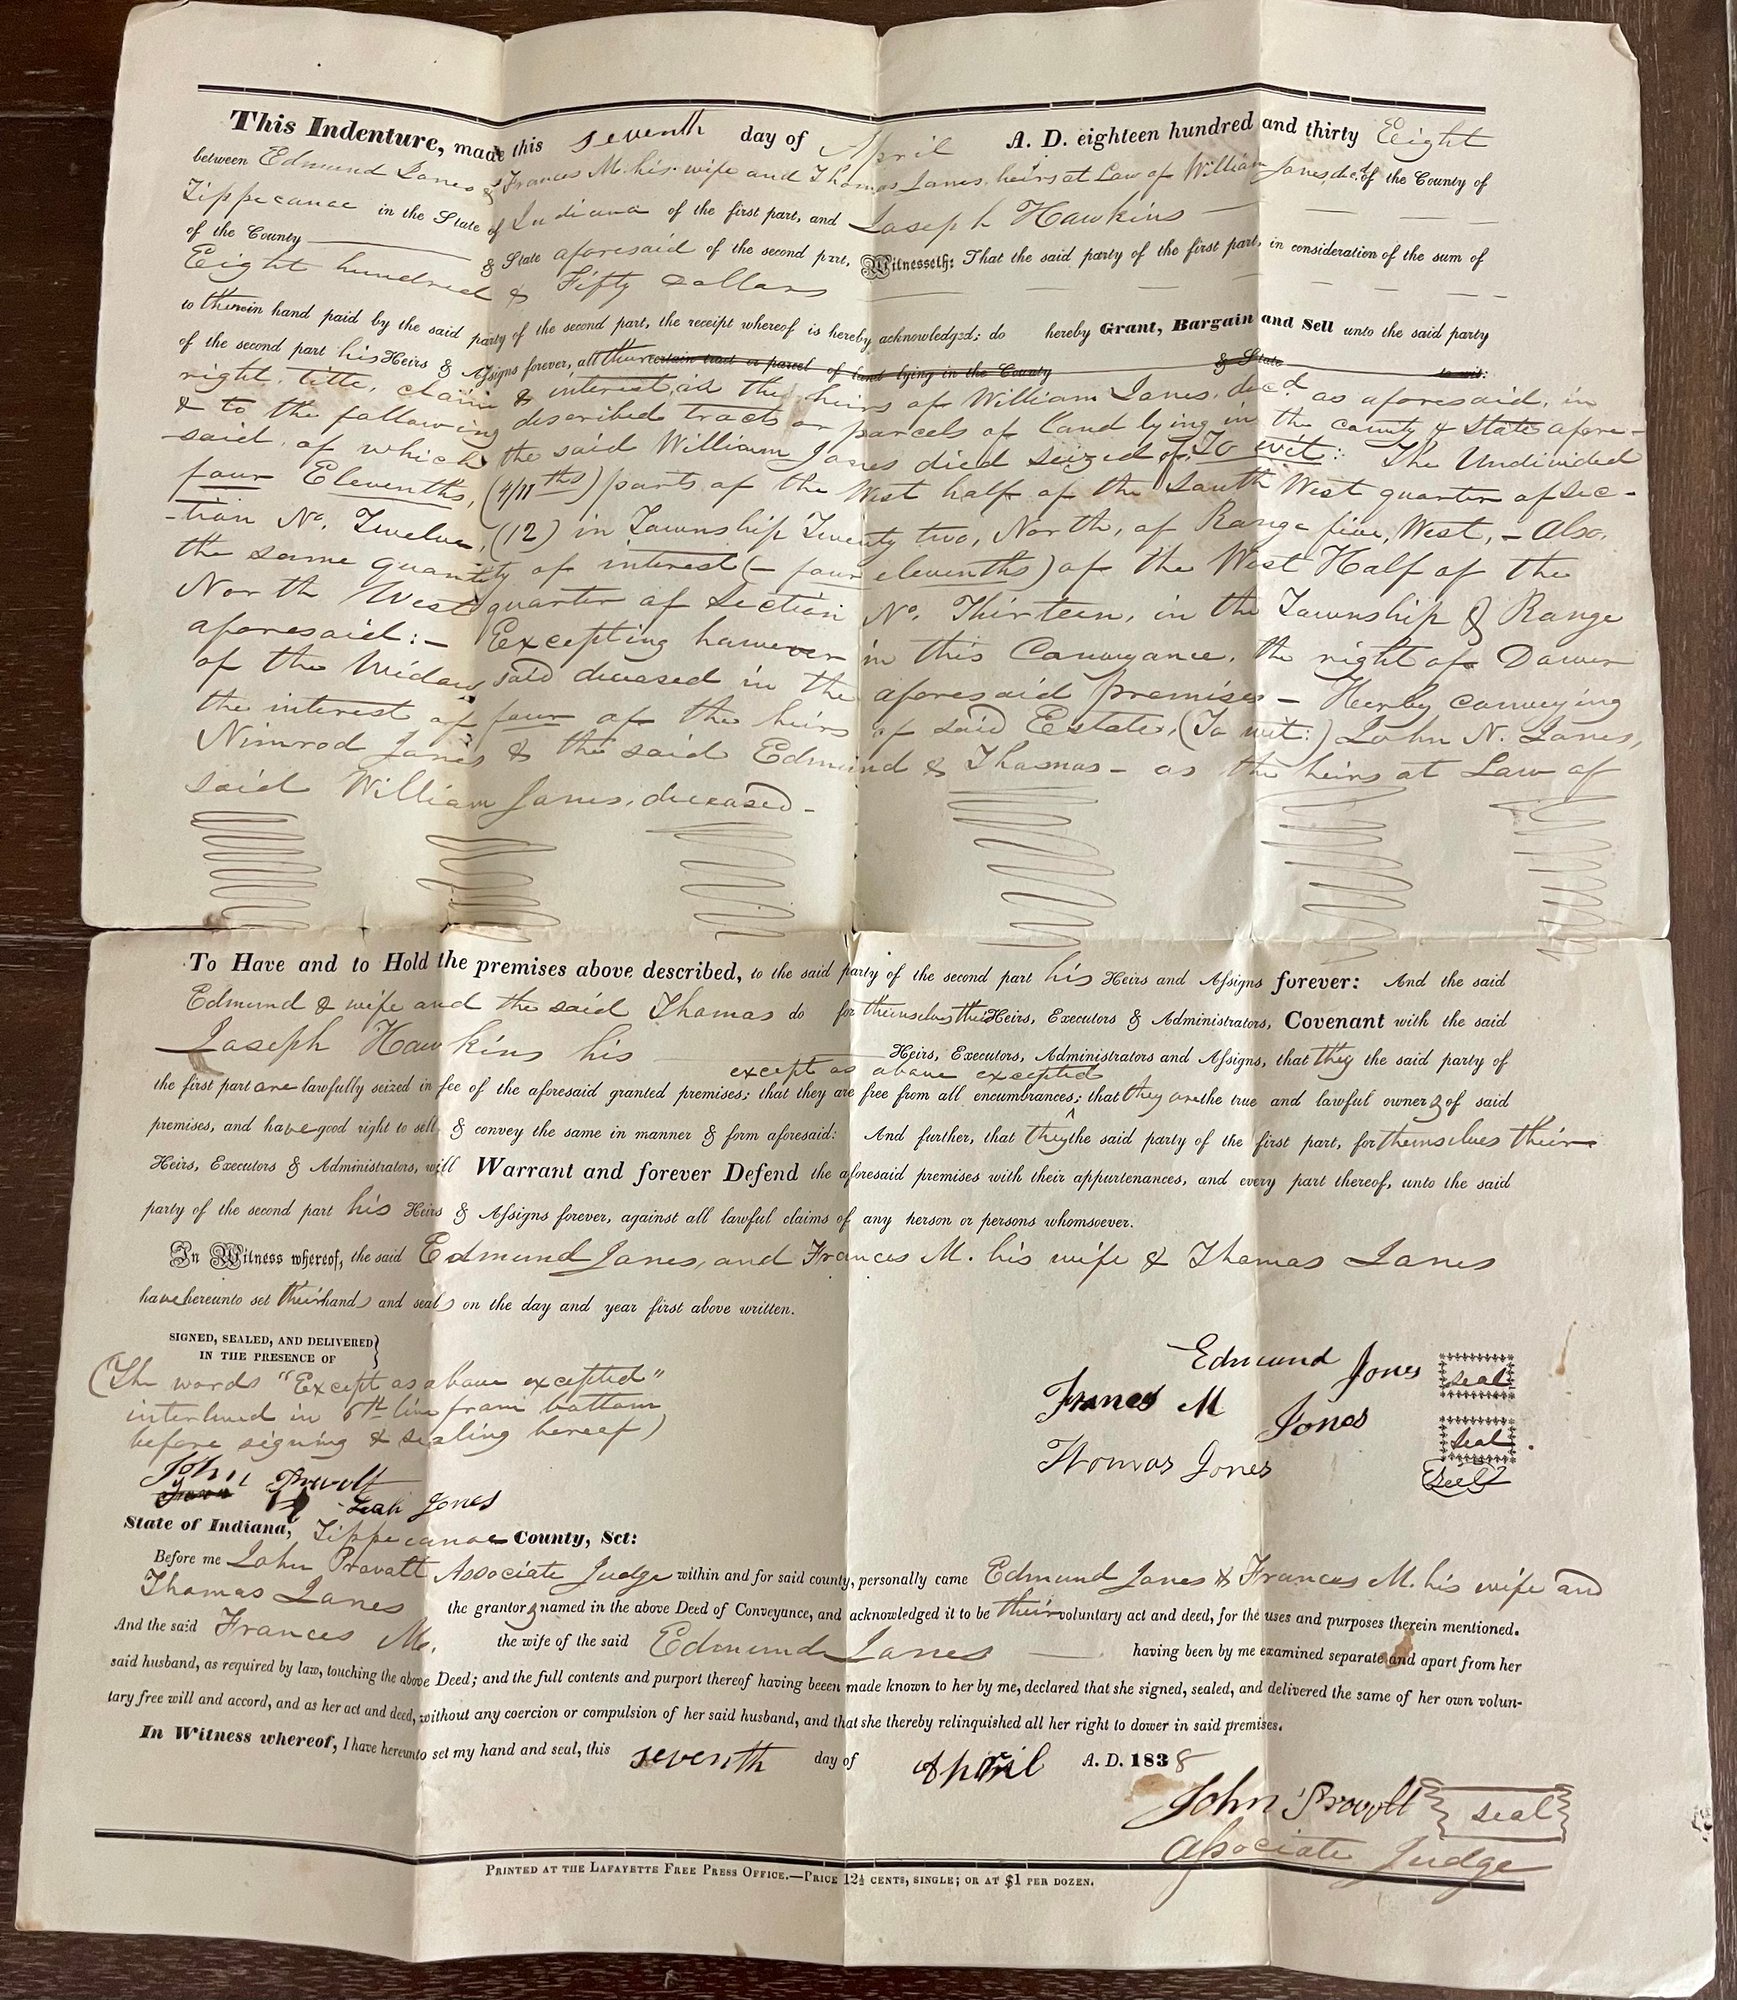 This Indenture, made this seventh day of April A. D. eighteen hundred and thirty Eight
between Edmund Jones & Frances M. his wife and Thomas Jones, heirs at Law of William Jones, dec.d of the County of
Tippecanoe in the State of Indiana of the first part, and Joseph Hawkins
of the County & State aforesaid of the second part, Witnesseth: That the said party of the first part, in consideration of the sum of
Eight hundred & Fifty Dollars
to them in hand paid by the said party of the second part, the receipt whereof is hereby acknowledged; do hereby Grant, Bargain and Sell unto the said party
of the second part his Heirs & Assigns forever, all their certain tract or parcel of land lying in the County & State to wit:
right, title, claim & interest, as the heirs of William Jones, dec.d as aforesaid, in
& to the following described tracts or parcels of land lying in the county & State afore-
said, of which the said William Jones died seized of, To wit: The Undivided
four Elevenths, (4/11ths) parts of the West half of the South West quarter of Sec-
tion No. Twelve, (12) in Township Twenty two, North, of Range five, West, - Also,
the same quantity of interest (- four elevenths) of the West Half of the
North West quarter of Section No. Thirteen, in the Township & Range
aforesaid: - Excepting however in this Conveyance, the right of Dower
of the Widow said deceased in the aforesaid premises - Hereby conveying
the interest of four of the heirs of said Estate, (To wit:) John N. Jones,
Nimrod Jones & the said Edmund & Thomas - as the heirs at Law of
said William Jones, deceased -
To Have and to Hold the premises above described, to the said party of the second part his Heirs and Assigns forever: And the said
Edmund & wife and the said Thomas do for themselves their Heirs, Executors & Administrators, Covenant with the said
Joseph Hawkins his Heirs, Executors, Administrators and Assigns, that they the said party of
except as above excepted
the first part are lawfully seized in fee of the aforesaid granted premises; that they are free from all encumbrances; that they are the true and lawful owners of said
premises, and have good right to sell & convey the same in manner & form aforesaid: And further, that they the said party of the first part, for themselves their
Heirs, Executors & Administrators, will Warrant and forever Defend the aforesaid premises with their appurtenances, and every part thereof, unto the said
party of the second part his Heirs & Assigns forever, against all lawful claims of any person or persons whomsoever.
In Witness whereof, the said Edmund Jones, and Frances M. his wife & Thomas Jones
have hereunto set their hands and seals on the day and year first above written.
SIGNED, SEALED, AND DELIVERED
IN THE PRESENCE OF
(The words "Except as above excepted"
interlined in 6th line from bottom
before signing & sealing hereof)
John Provolt
Leah Jones
Edmund Jones seal
Frances M Jones seal
Thomas Jones Seal
State of Indiana, Tippecanoe County, Sct:
Before me John Provolt Associate Judge within and for said county, personally came Edmund Jones & Frances M. his wife and
Thomas Jones the grantors named in the above Deed of Conveyance, and acknowledged it to be their voluntary act and deed, for the uses and purposes therein mentioned.
And the said Frances M. the wife of the said Edmund Jones having been by me examined separate and apart from her
said husband, as required by law, touching the above Deed; and the full contents and purport thereof having beeen made known to her by me, declared that she signed, sealed, and delivered the same of her own volun-
tary free will and accord, and as her act and deed, without any coercion or compulsion of her said husband, and that she thereby relinquished all her right to dower in said premises.
In Witness whereof, I have hereunto set my hand and seal, this seventh day of April A. D. 1838
John Provolt seal
Associate Judge
PRINTED AT THE LAFAYETTE FREE PRESS OFFICE.—PRICE 12½ CENTS, SINGLE; OR AT $1 PER DOZEN.